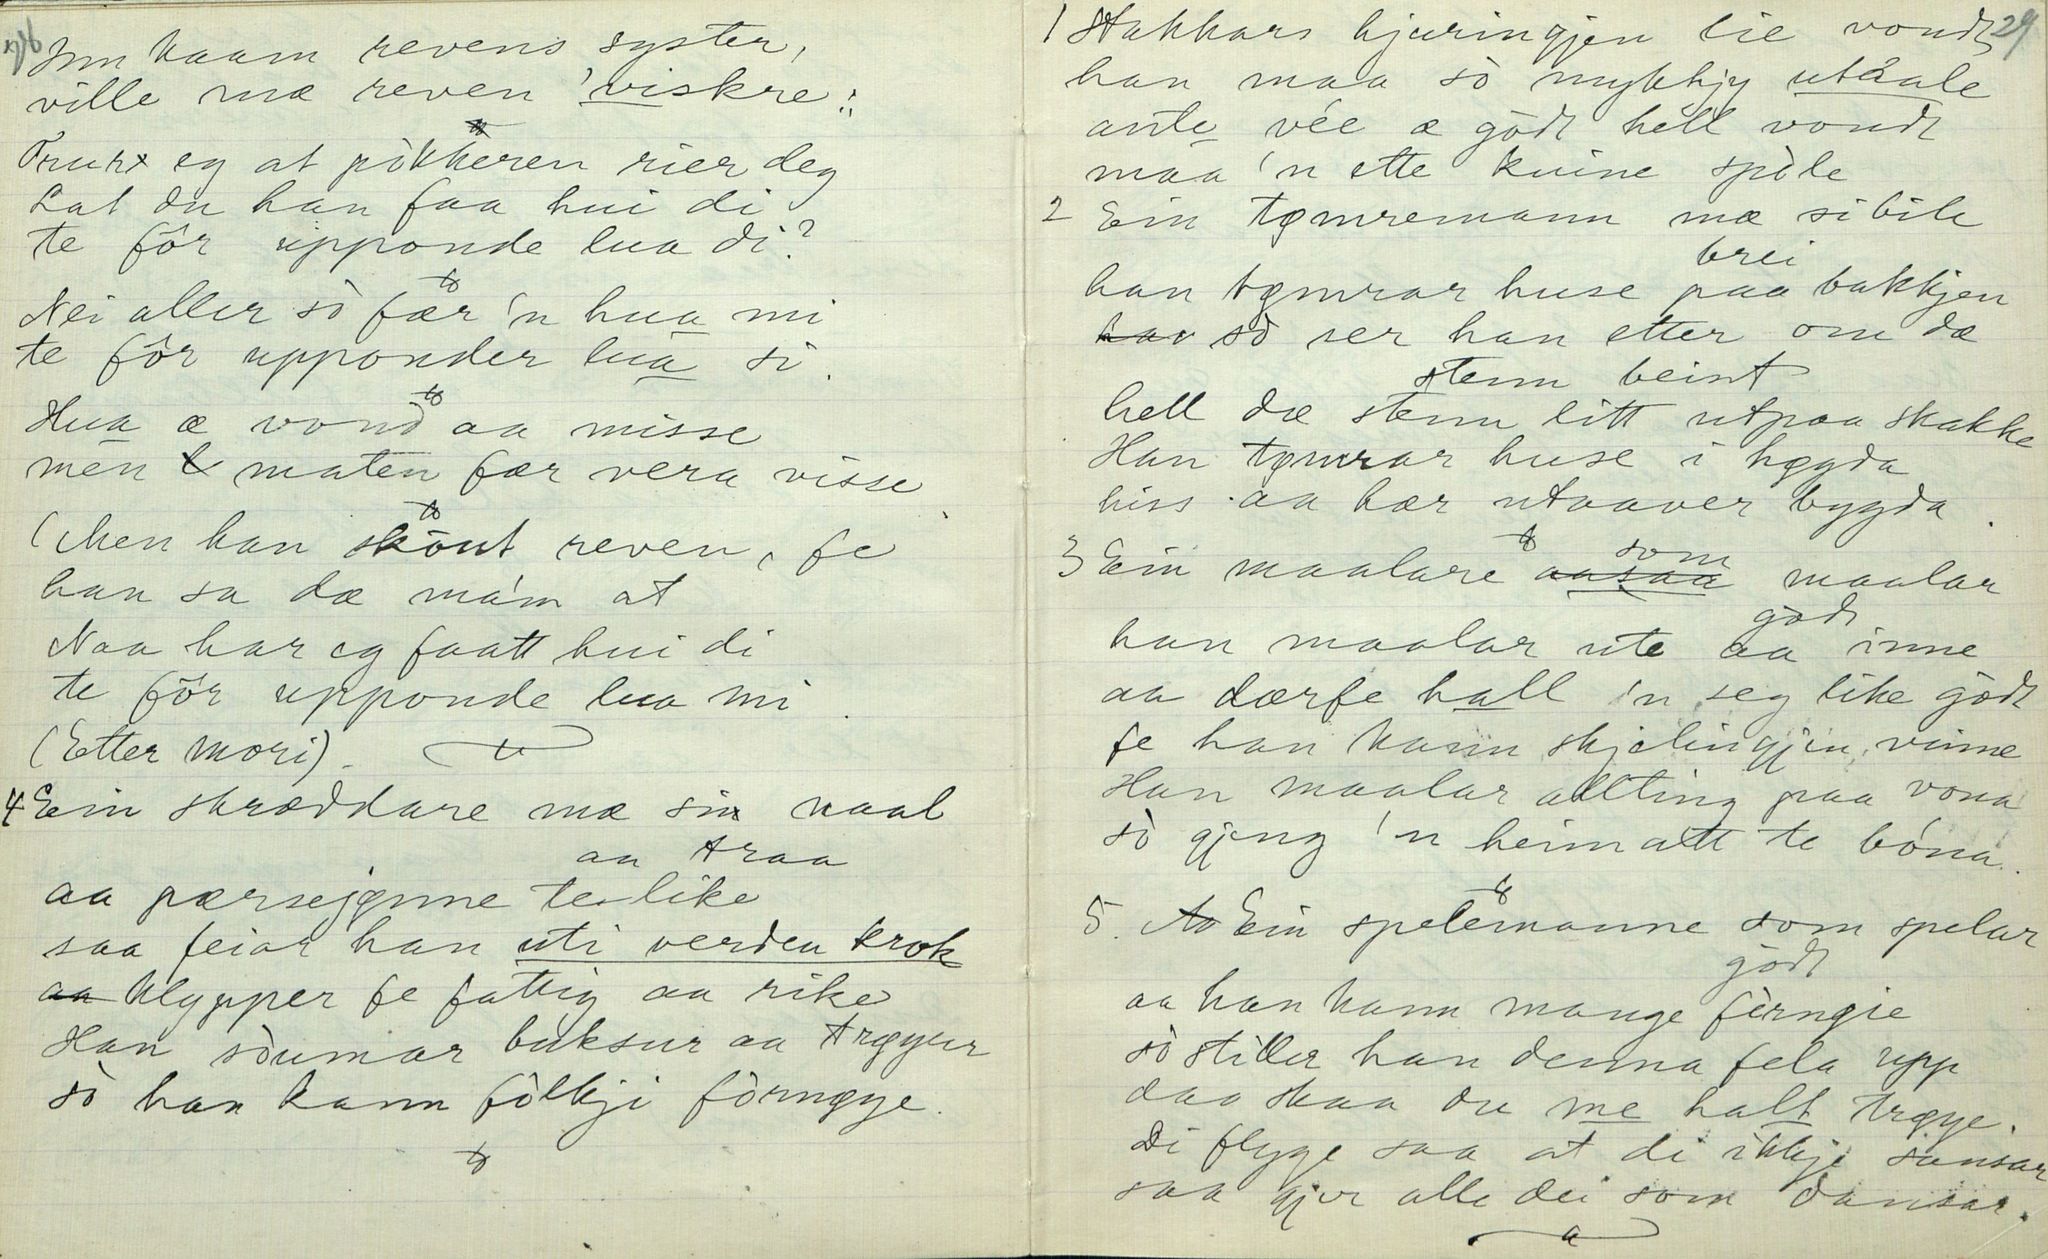 Inn kaam revens syster,
ville mæ reven 'viskre:
Trurx eg at pòkkeren rier deg
Lat du han faa hui di
te fôr upponde lua di?
Nei aller sò fær'n hua mi
te fôr upponder lua si.
Hua æ vond aa misse
men maten fær vera visse
(Men han skönt reven, fe
han sa dæ mám at
Naa har eg faatt hui di
te fôr upponde lua mi.
(Etter mori).
4 Ein skræddare mæ sin naal
aa traa
aa pærsejønne te like
saa feiar han uti verden krok
aa klypper fe fattig aa rike
Han sòumar buksur aa trøyur
sò han kann fòlkji fòrnøye.
29
1 Stakkars hjuringjen lie vondt
han maa sò mykkjy utåale
ante vée æ gòdt hell vondt
maa 'n ette kuine spòle
2 Ein tømremann mæ si bile
brei
han tømrar huse paa bakkjen
han sò ser han etter om dæ
stenn beint
hell dæ stenn litt utpaa skakke
Han tømrar huse i høgda
hiss aa hær utaaver bygda.
3 Ein maalare aasaa som maalar
gòdt
han maalar ute aa inne
aa dærfe hall 'n seg like gòdt
fe han kann skjelingjin vinne
Han maalar allting paa vona
sò gjeng 'n heimatt te bóna.
5. Aa Ein spelemanne som spelar
gòdt
aa han kann mange fèrngie
sò stiller han denna fela upp
daa skaa du me halt trøye.
Di flyge saa at di ikkje sansar
saa gjer alle dei som dansar.